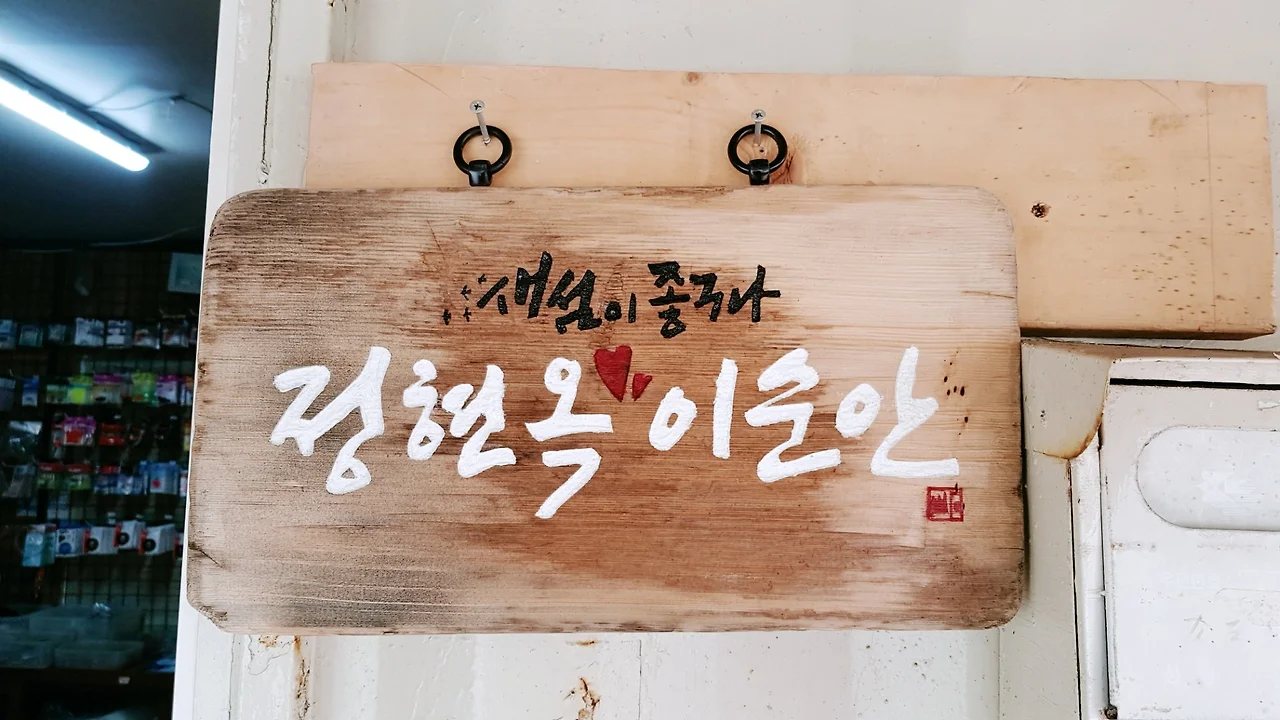 새섬이 좋구나
정현옥 이순안